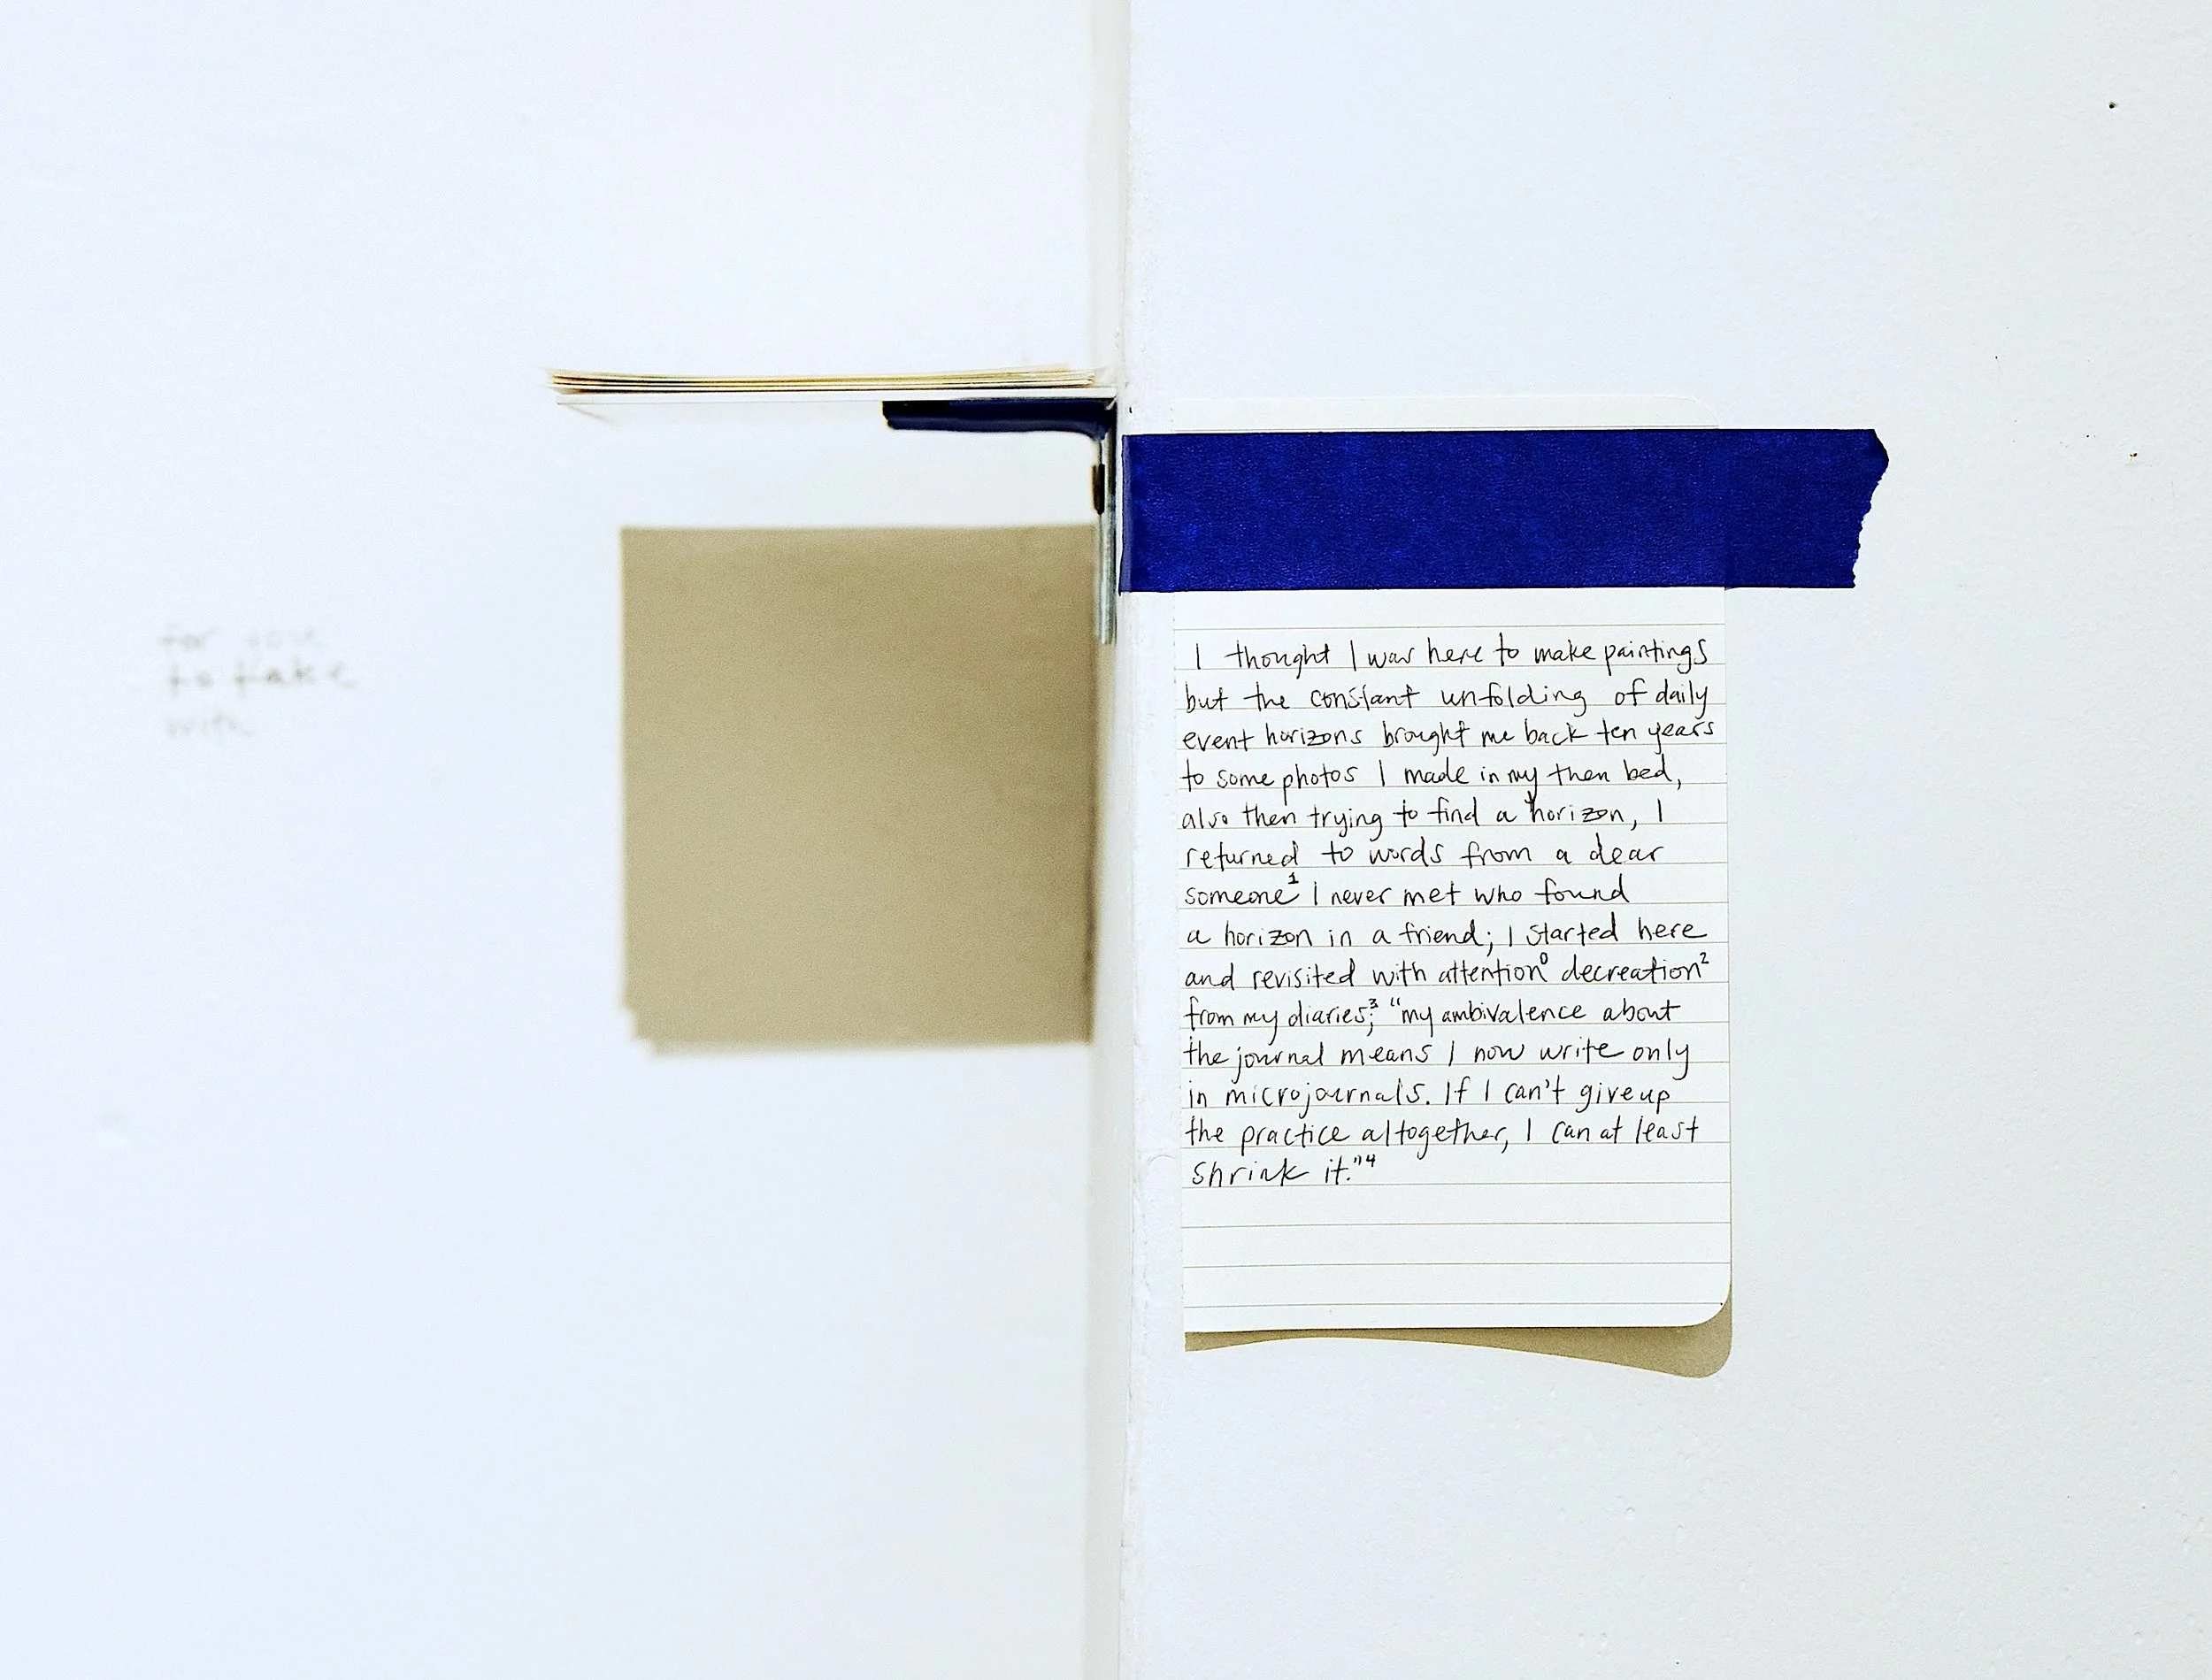 for you
to take
with
I thought I was here to make paintings
but the constant unfolding of daily
event horizons brought me back ten years
to some photos I made in my then bed,
also then trying to find a horizon, I
returned to words from a dear
someone¹ I never met who found
a horizon in a friend; I started here
and revisited with attention⁰ decreation²
from my diaries;³ "my ambivalence about
the journal means I now write only
in microjournals. If I can't give up
the practice altogether, I can at least
shrink it."⁴